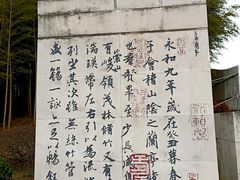 永和九年歲在癸丑暮春
于會稽山陰之蘭亭
也羣賢畢至少長
有崇山峻領茂林脩竹又有
湍暎帶左右引以為流
列坐其次雖無絲竹管
盛一觴一詠亦足以暢叙